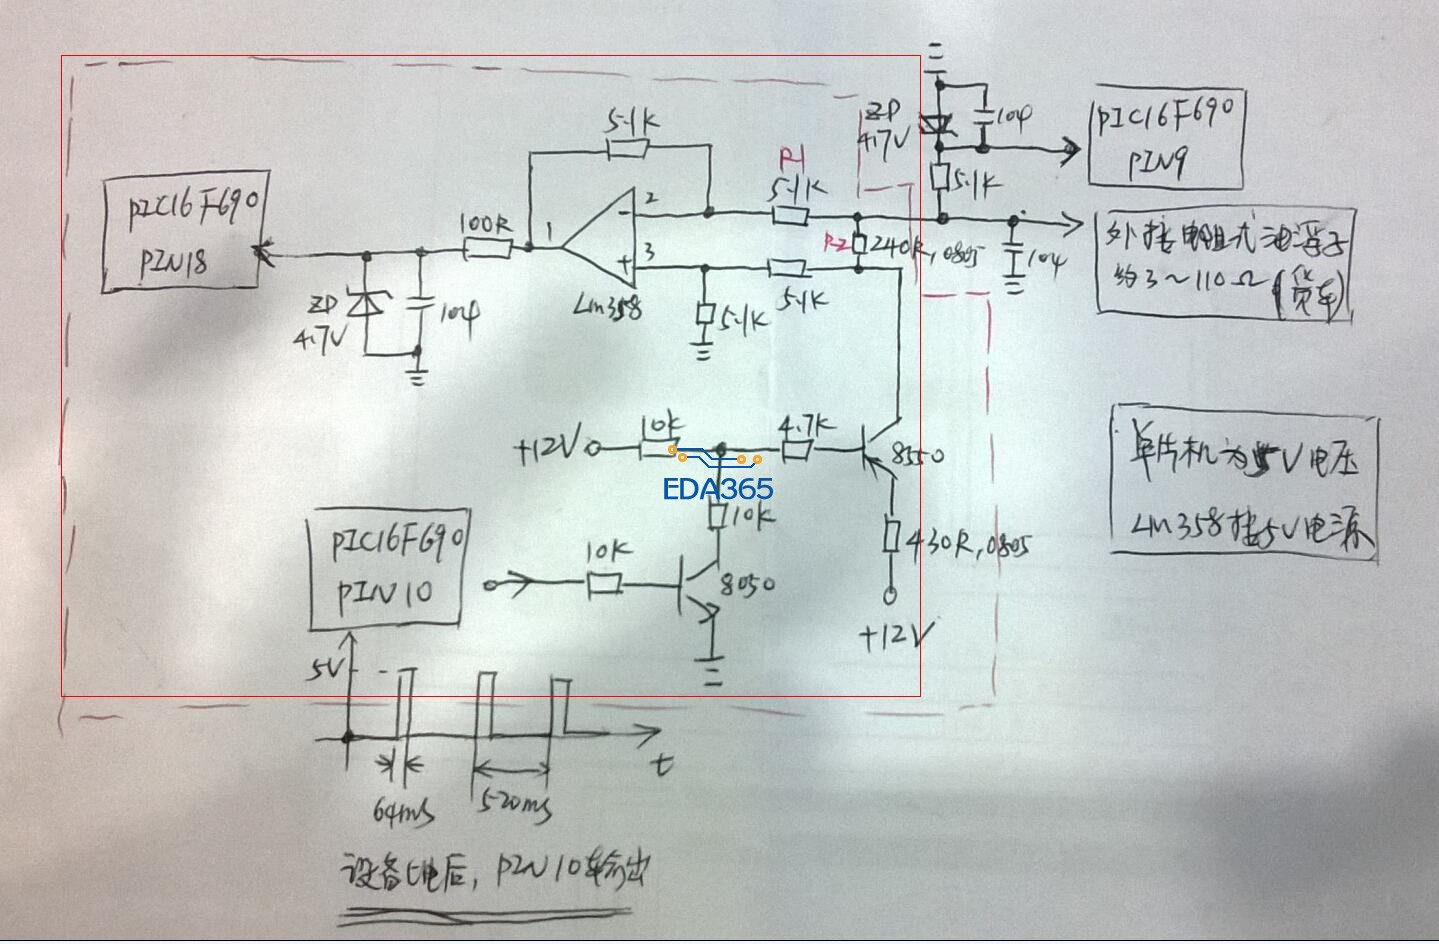 ZD
4.7V
104
PIC16F690
PIN9
5.1K
5.1K
R1
5.1K
PIC16F690
PIN18
100R
1
2
3
-
+
LM358
R2
240R,0805
5.1K
104
外接电阻式油浮子
约3~110Ω(货车)
ZD
4.7V
104
5.1K
5.1K
+12V
10K
4.7K
8550
EDA365
10K
单片机为5V电压
LM358接5V电源
PIC16F690
PIN10
10K
8050
430R,0805
+12V
5V
t
64ms
520ms
设备上电后，PIN10输出